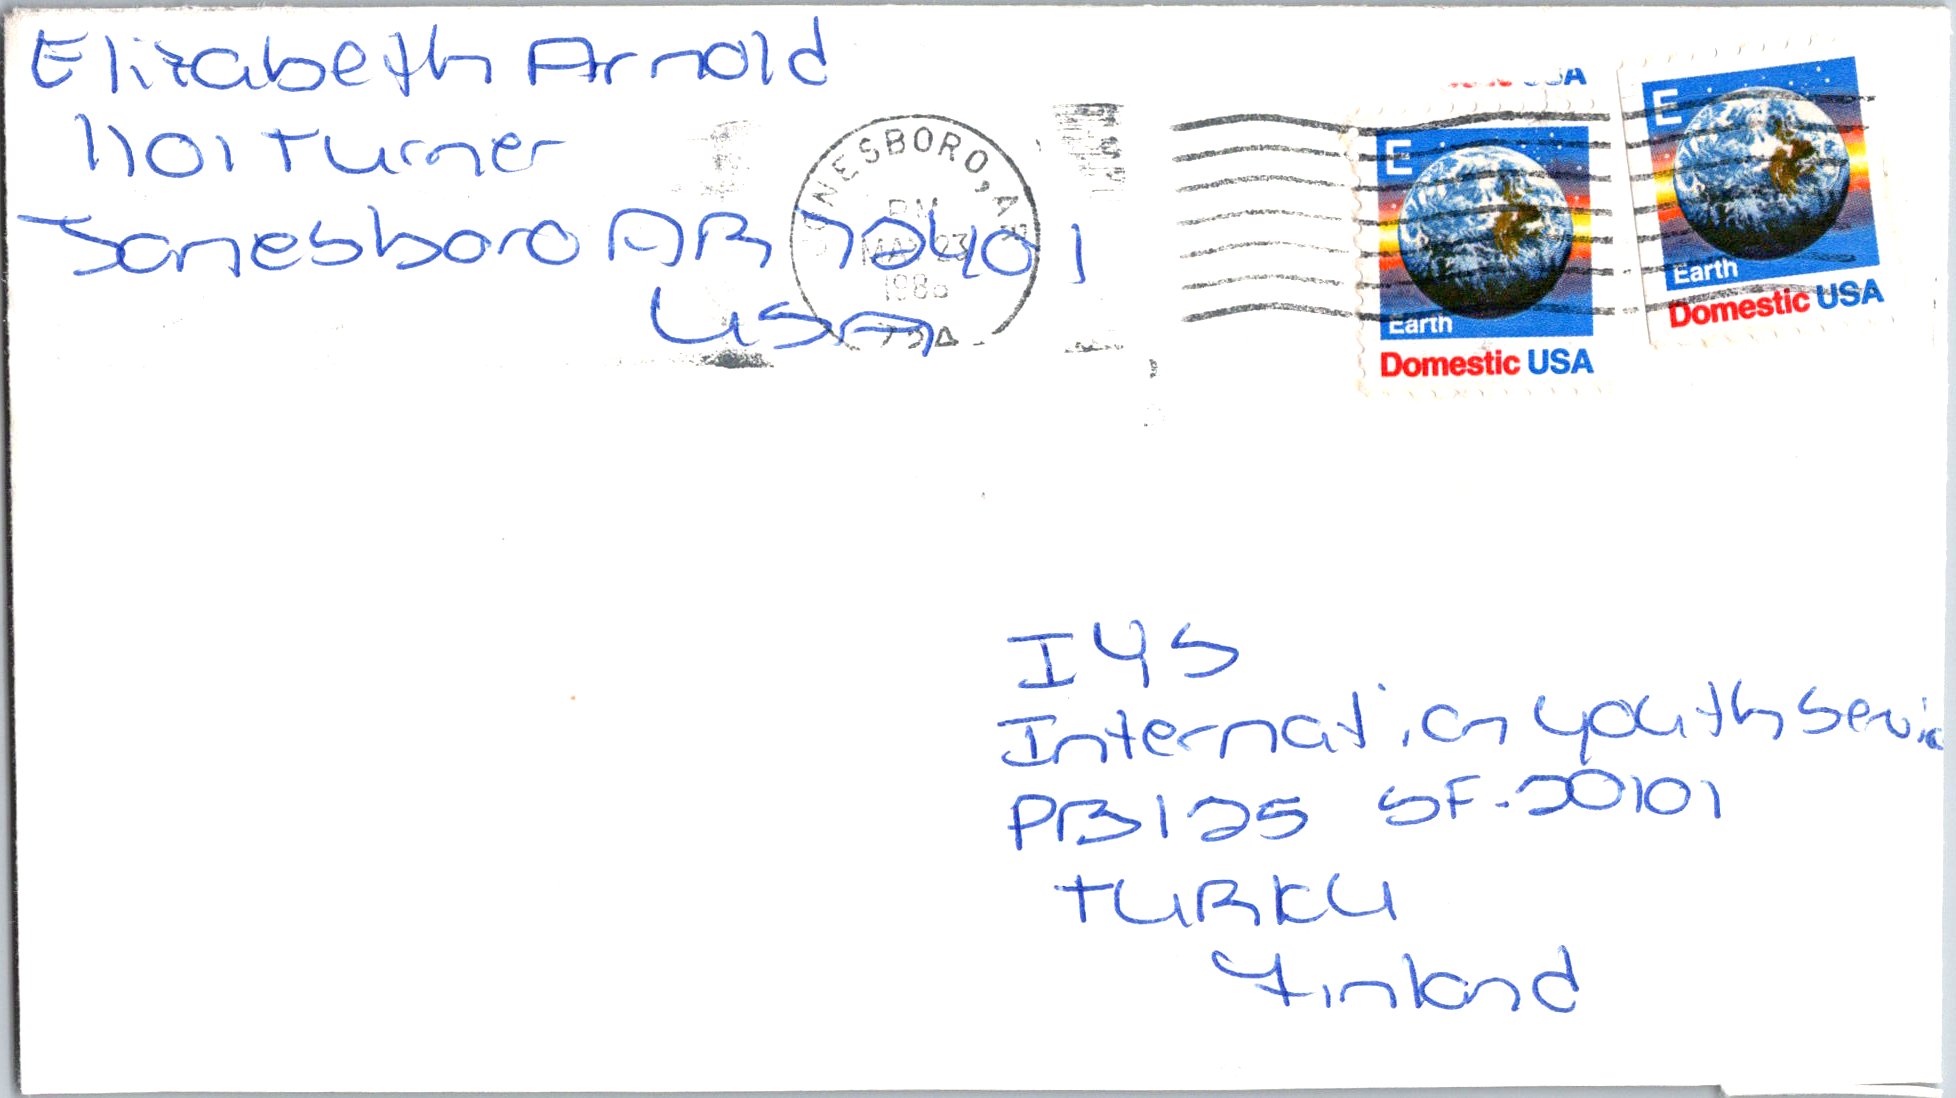 Elizabeth Arnold
1101 Turner
Jonesboro AR 72401
USA
JONESBORO, AR
PM
MAY 23
1988
USA
E
Earth
Domestic USA
E
Earth
Domestic USA
IYS
Internation Youth Servic
PB 125 SF-20101
TURKU
Finland